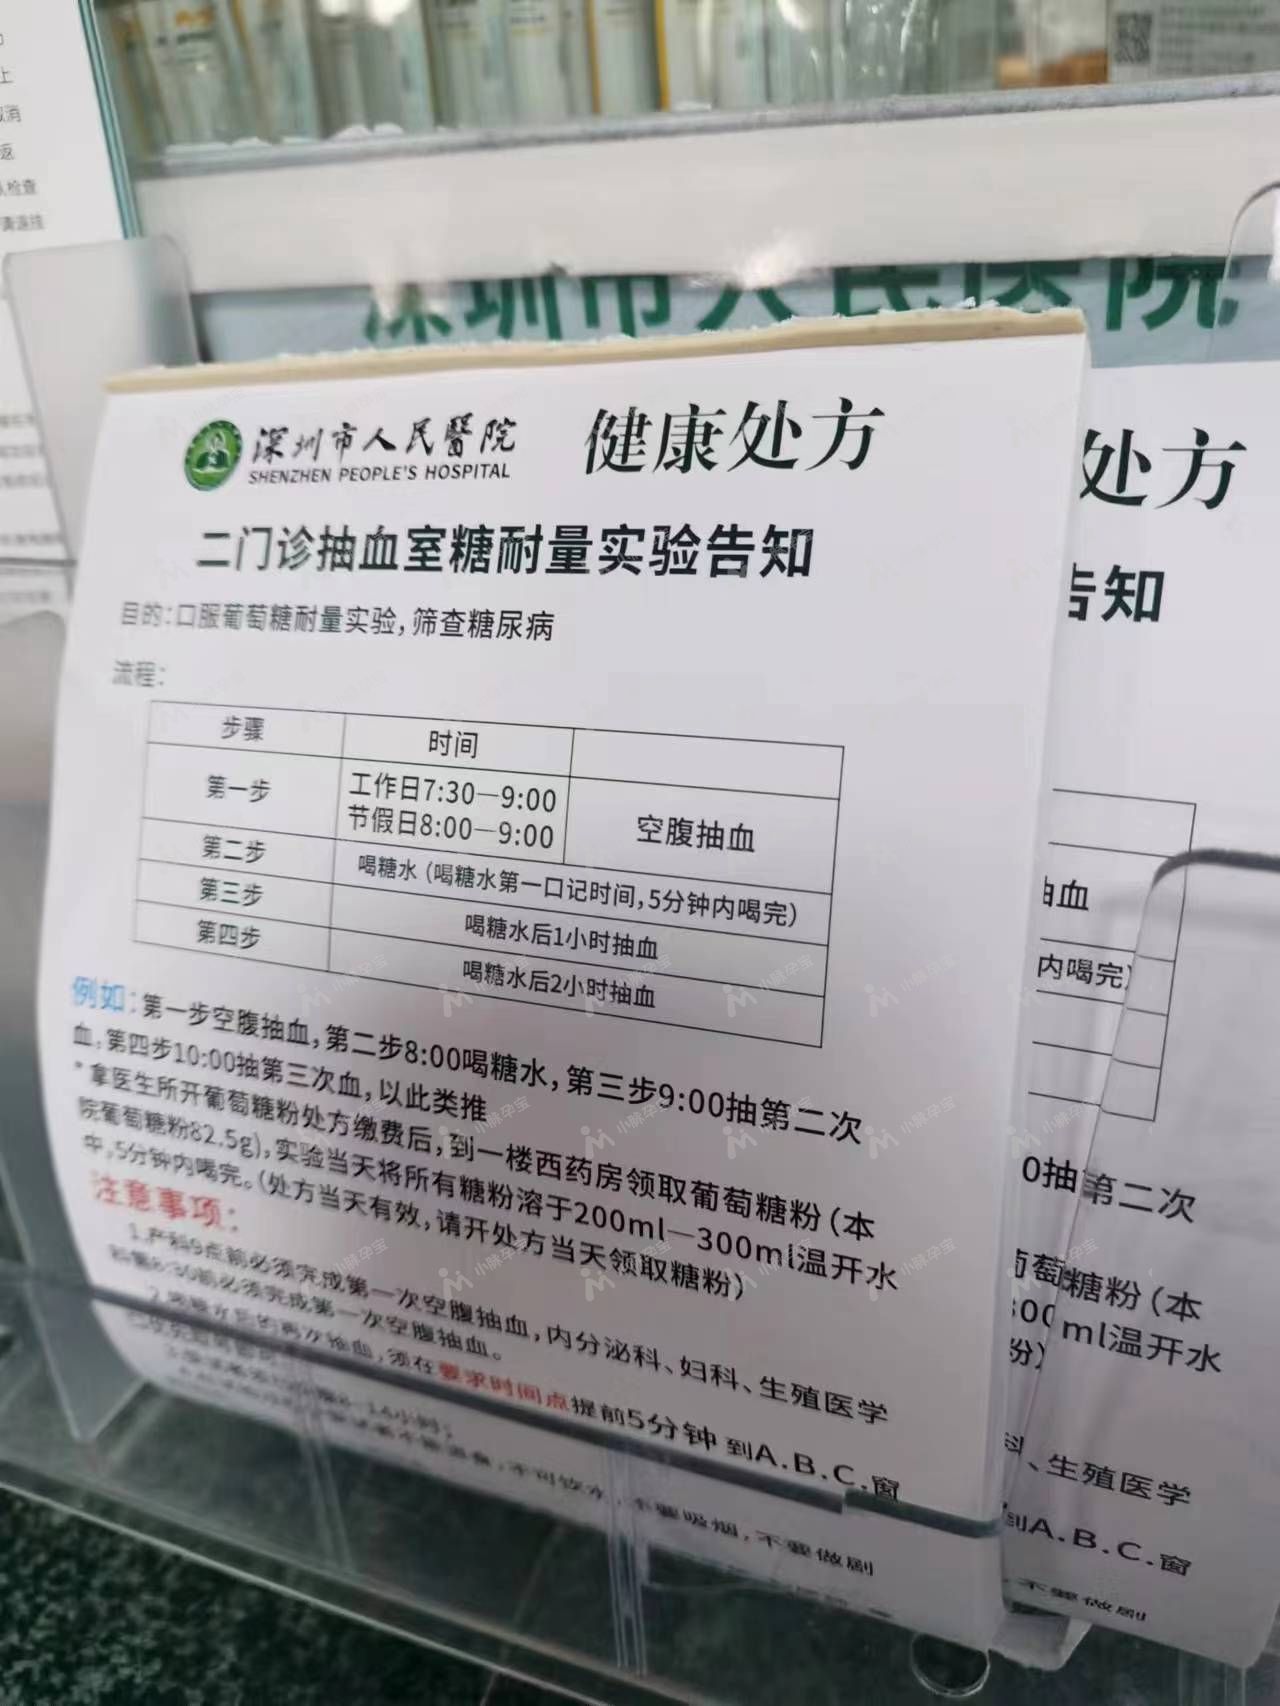 止
取消
返
队检查
请退挂
深圳市人民医院
深圳市人民醫院 健康处方
SHENZHEN PEOPLE'S HOSPITAL
二门诊抽血室糖耐量实验告知
目的：口服葡萄糖耐量实验，筛查糖尿病
流程：
步骤 时间
第一步 工作日7:30—9:00 空腹抽血
节假日8:00—9:00
第二步 喝糖水（喝糖水第一口记时间，5分钟内喝完）
第三步 喝糖水后1小时抽血
第四步 喝糖水后2小时抽血
例如：第一步空腹抽血，第二步8:00喝糖水，第三步9:00抽第二次
血，第四步10:00抽第三次血，以此类推
*拿医生所开葡萄糖粉处方缴费后，到一楼西药房领取葡萄糖粉（本
院葡萄糖粉82.5g），实验当天将所有糖粉溶于200ml—300ml温开水
中，5分钟内喝完。（处方当天有效，请开处方当天领取糖粉）
注意事项：
1.产科9点前必须完成第一次空腹抽血，内分泌科、妇科、生殖医学
科需8:30前必须完成第一次空腹抽血。
2.喝糖水后的两次抽血，须在要求时间点提前5分钟 到A.B.C.窗
14小时；
不可饮水，不要吸烟，不要做剧
处方
告知
抽血
内喝完）
0抽第二次
葡萄糖粉（本
300ml温开水
粉）
科、生殖医学
到A.B.C.窗
不要做剧
小脉孕宝